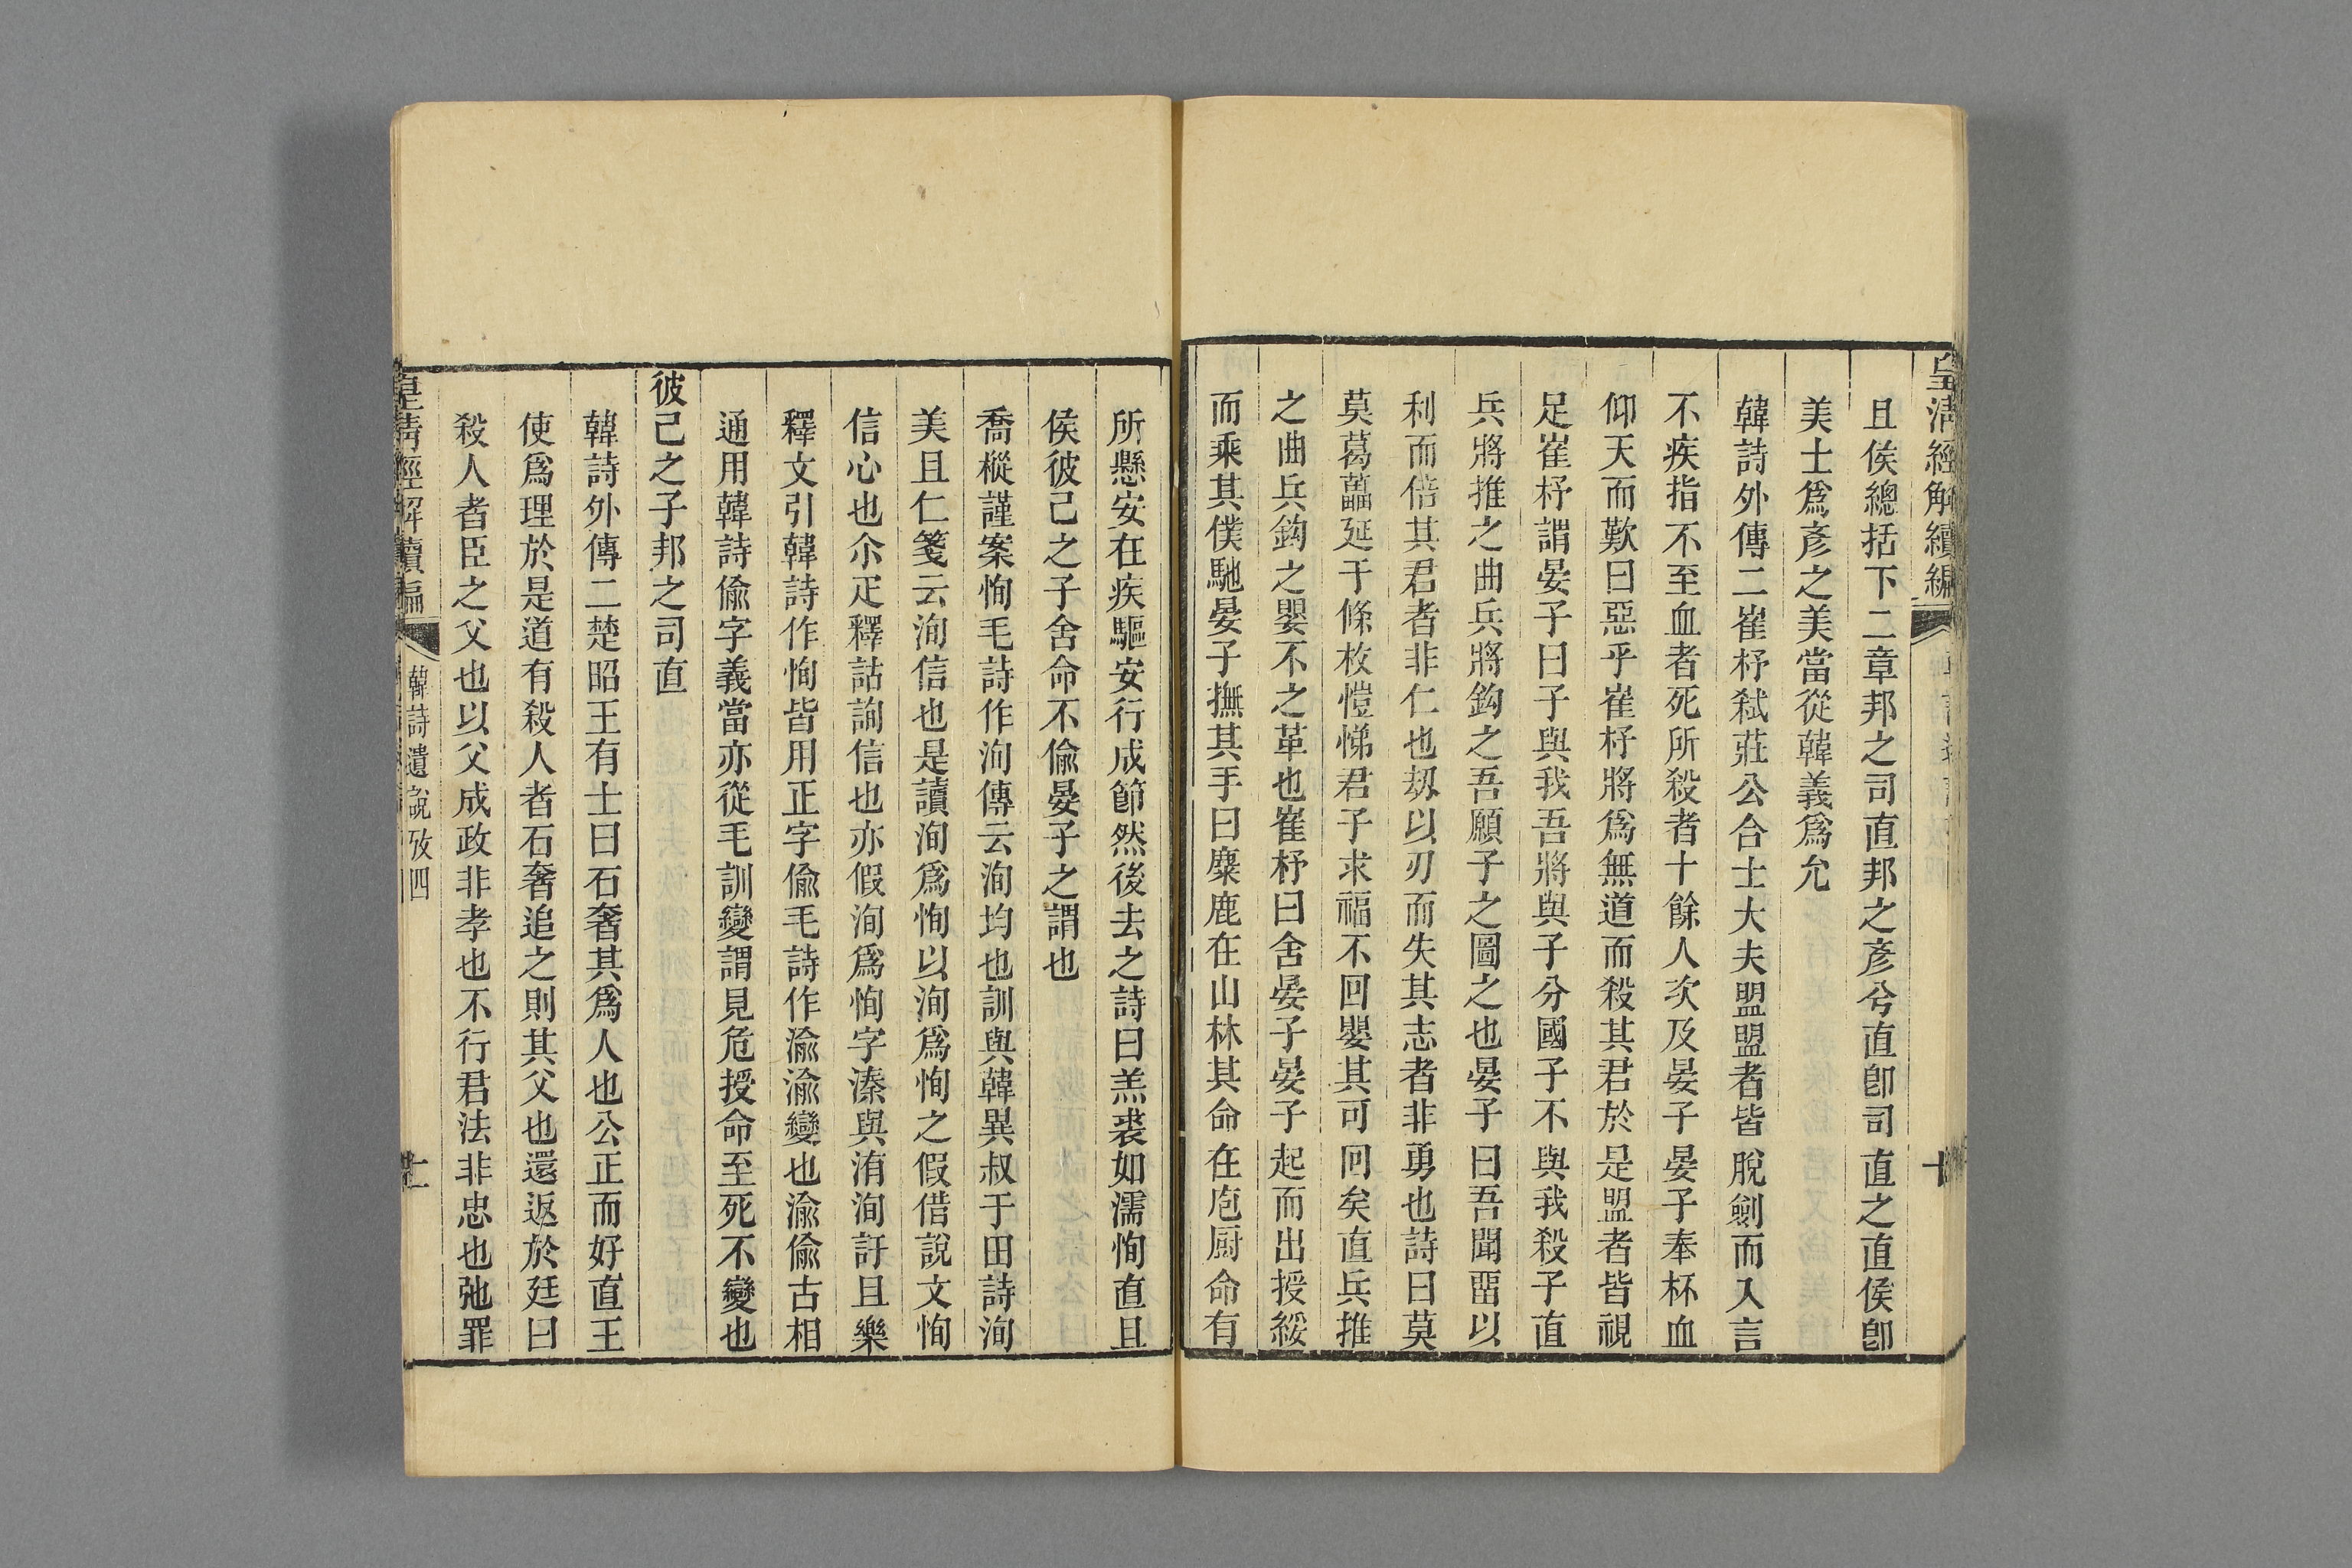 皇清經解續編
十
且侯總括下二章邦之司直邦之彥兮直卽司直之直侯卽
美士爲彥之美當從韓義爲允
韓詩外傳二崔杼弒莊公合士大夫盟盟者皆脫劍而入言
不疾指不至血者死所殺者十餘人次及晏子晏子奉杯血
仰天而歎曰惡乎崔杼將爲無道而殺其君於是盟者皆視
足崔杼謂晏子曰子與我吾將與子分國子不與我殺子直
兵將推之曲兵將鈎之吾願子之圖之也晏子曰吾聞畱以
利而倍其君者非仁也劫以刃而失其志者非勇也詩曰莫
莫葛藟延于條枚愷悌君子求福不回嬰其可回矣直兵推
之曲兵鈎之嬰不之革也崔杼曰舍晏子晏子起而出授綏
而乘其僕馳晏子撫其手曰麋鹿在山林其命在庖厨命有
所懸安在疾驅安行成節然後去之詩曰羔裘如濡恂直且
侯彼己之子舍命不偸晏子之謂也
喬樅謹案恂毛詩作洵傳云洵均也訓與韓異叔于田詩洵
美且仁箋云洵信也是讀洵爲恂以洵爲恂之假借說文恂
信心也尒疋釋詁詢信也亦假洵爲恂字溱與洧洵訏且樂
釋文引韓詩作恂皆用正字偸毛詩作渝渝變也渝偸古相
通用韓詩偸字義當亦從毛訓變謂見危授命至死不變也
彼己之子邦之司直
韓詩外傳二楚昭王有士曰石奢其爲人也公正而好直王
使爲理於是道有殺人者石奢追之則其父也還返於廷曰
殺人者臣之父也以父成政非孝也不行君法非忠也弛罪
皇清經解續編
韓詩遺說攷四
十一